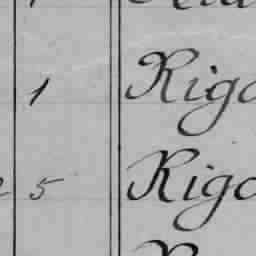 1 Rigo
5 Rigo